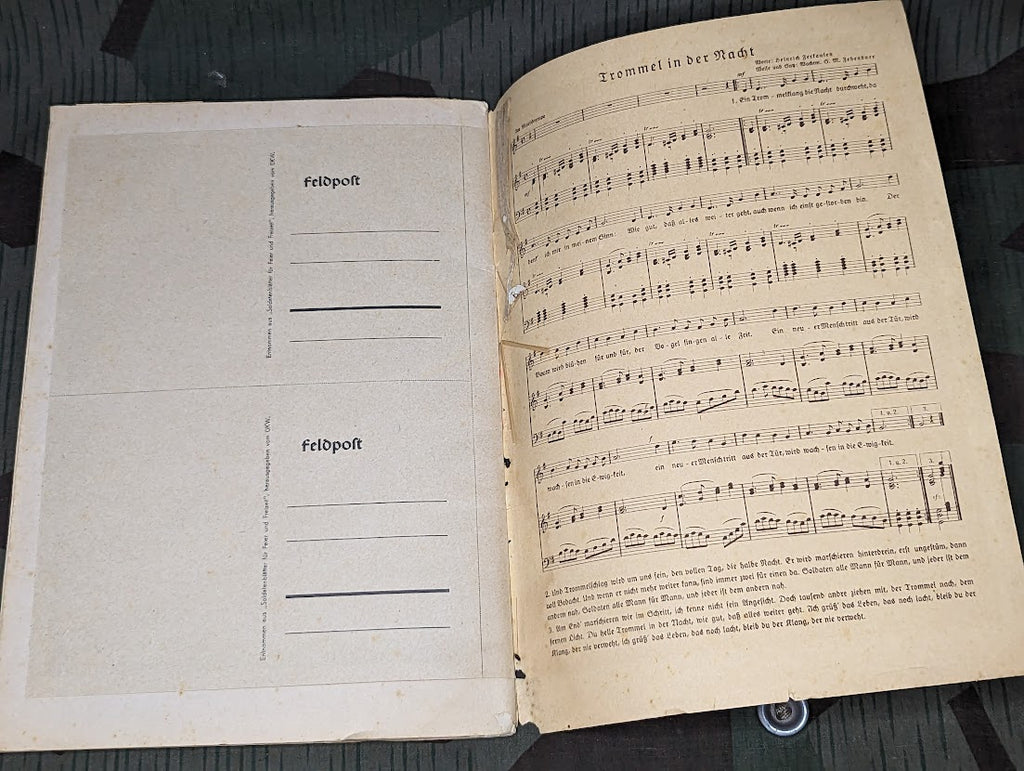 Feldpost
Entnommen aus „Soldatenblätter für Feier und Freizeit“, herausgegeben vom OKW.
Feldpost
Entnommen aus „Soldatenblätter für Feier und Freizeit“, herausgegeben vom OKW.
Trommel in der Nacht
Worte: Heinrich Zerkaulen
Weise und Satz: Wachtm.
Im Marschtempo
mf
1. Ein Trom - melklang die Nacht durchweht, da
mf
denk' ich mir in mei - nem Sinn: Wie gut, daß al - les wei - ter geht, auch wenn ich einst ge - stor - ben bin. Der
Baum wird blü - hen für und für, der Vo - gel sin - gen al - le Zeit. Ein neu - er Menschtritt aus der Tür, wird
1. u. 2. 3.
f
wach - sen in die E - wig - keit. ein neu - er Menschtritt aus der Tür, wird wach - sen in die E - wig - keit.
1. u. 2. 3.
f
2. Und Trommelschlag wird um uns sein, den vollen Tag, die halbe Nacht. Er wird marschieren hinterdrein, erst ungestüm, dann
voll Bedacht. Und wenn er nicht mehr weiter kann, sind immer zwei für einen da. Soldaten alle Mann für Mann, und jeder ist dem
andern nah. Soldaten alle Mann für Mann, und jeder ist dem andern nah.
3. Am End' marschieren wir im Schritt, ich kenne nicht sein Angesicht. Doch tausend andre ziehen mit, der Trommel nach, dem
fernen Licht. Du helle Trommel in der Nacht, wie gut, daß alles weiter geht. Ich grüß' das Leben, das noch lacht, bleib du der
Klang, der nie verweht, ich grüß' das Leben, das noch lacht, bleib du der Klang, der nie verweht.